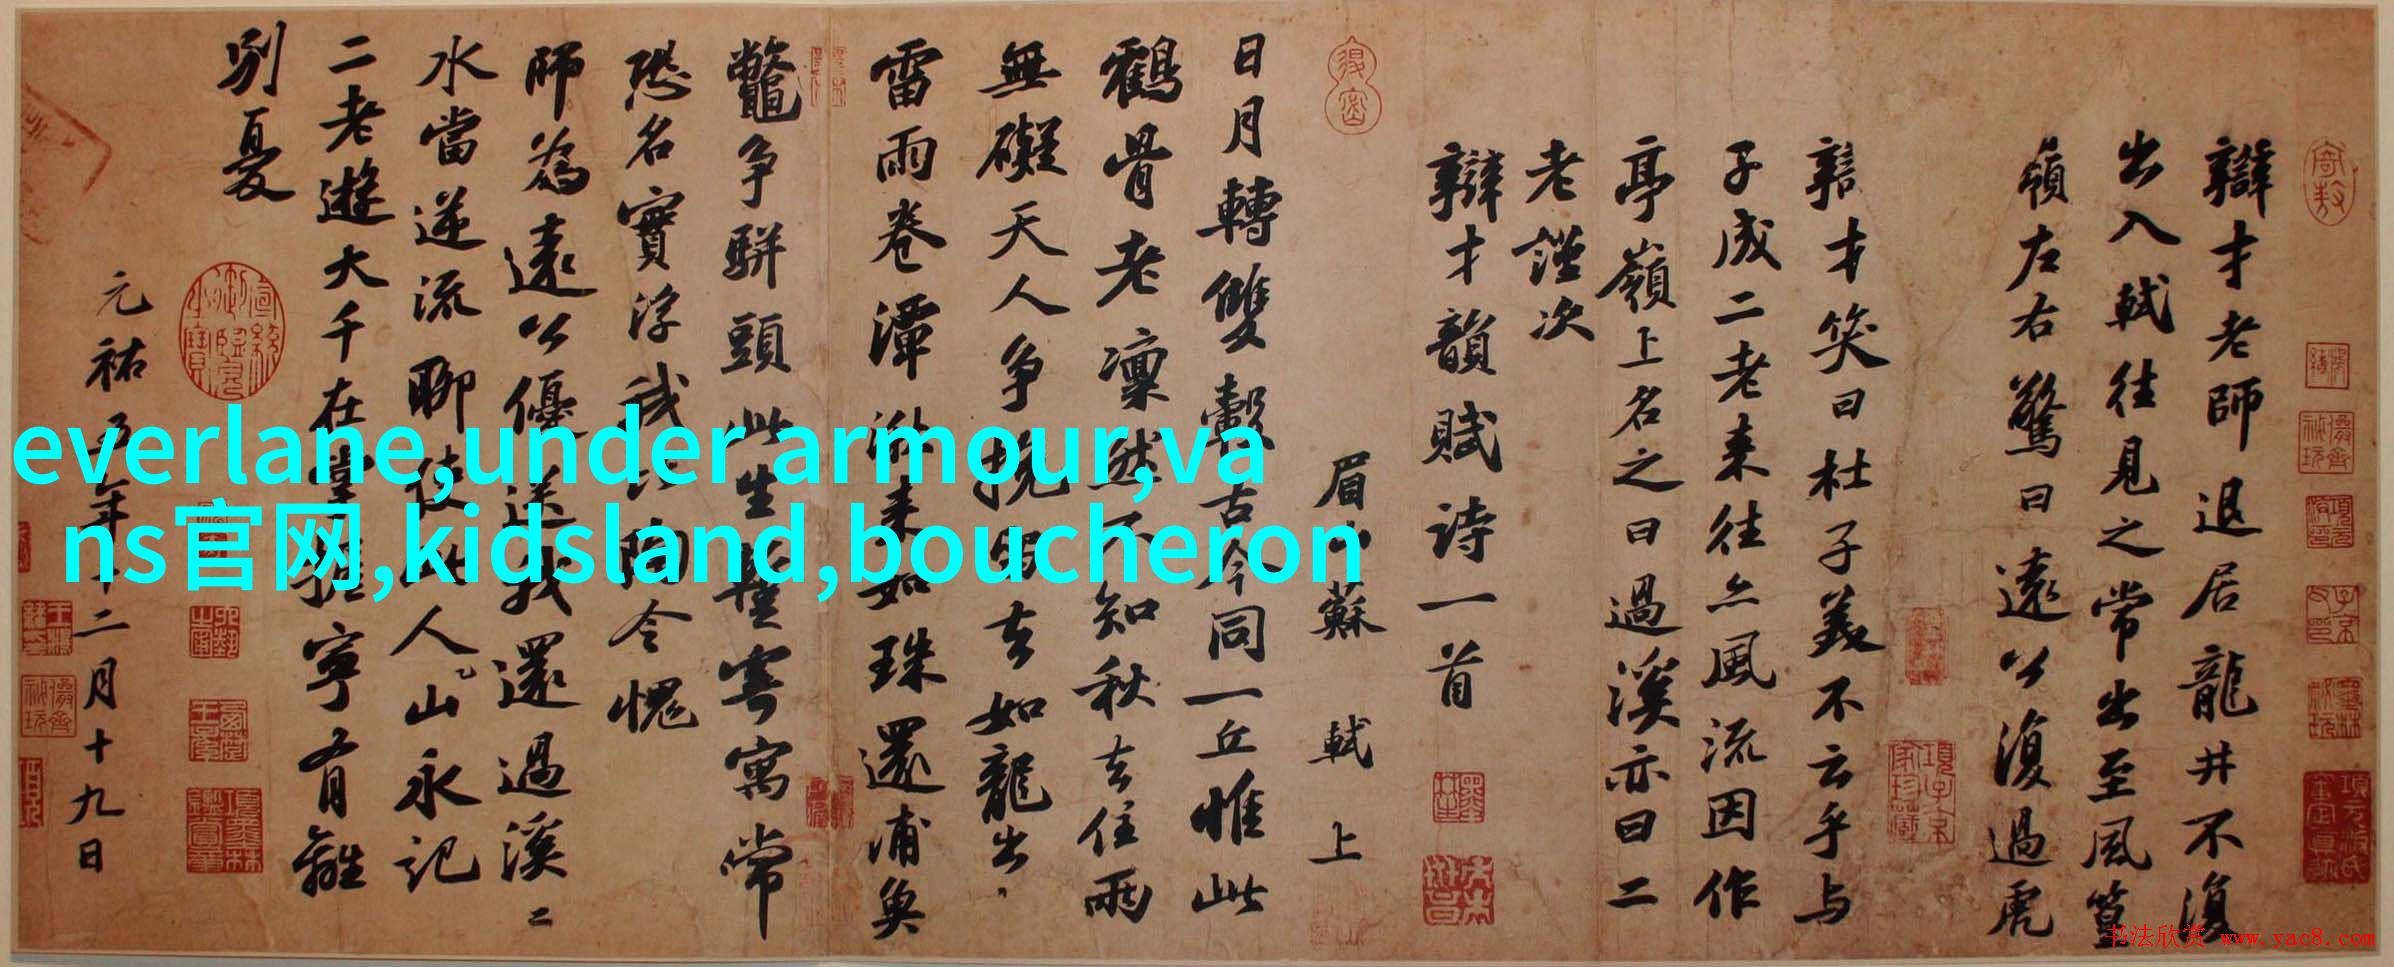 辯才老師退居龍井不復
出入軾往見之常出至風篁
嶺左右驚曰遠公復過虎
辯才笑曰杜子美不云乎与
子成二老来往亦風流因作
亭嶺上名之曰過溪亦曰二
老謹次
辯才韻賦詩一首
眉山蘇軾上
日月轉雙轂古今同一丘惟此
鶴骨老凜然不知秋去住兩
無礙天人爭挽留去如龍出
雷雨卷潭湫来如珠還浦魚
鼈爭駢頭此生暫寄寓常
恐名實浮我比陶令愧
師為遠公優送我還過溪二
水當逆流聊使此人山永記
二老遊大千在掌握寧有離
别憂
元祐五年十二月十九日
everlane,under armour,va
ns官网,kidsland,boucheron
书法欣赏 www.yac8.com